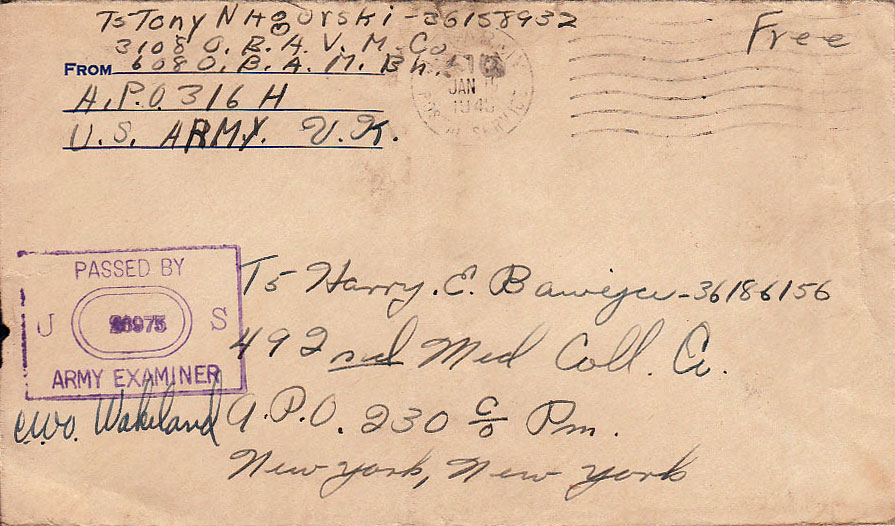 T5 Tony N Hgurski - 36158932
3108 O. B. A. V. M. Co
FROM 608 O. B. A. M. Bn.
A.P.O. 316 H
U.S. ARMY. U.K.
Free
JAN
PASSED BY
U S
ARMY EXAMINER
C.W.O. Wakeland
T5 Harry. E. - 36186156
492 nd Med Coll. Co.
A.P.O. 230 c/o Pm.
New York, New York